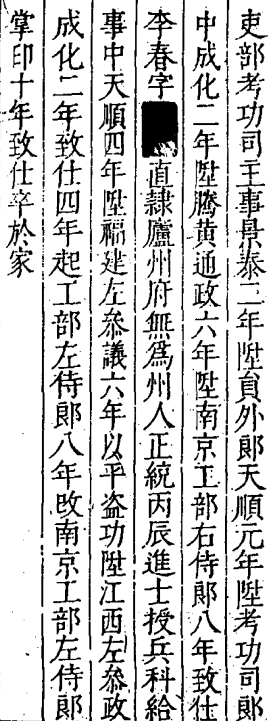 吏部考功司主事景泰二年陞員外郎天順元年陞考功司郎
中成化二年陞謄黃通政六年陞南京工部右侍郎八年致仕
李春字直隸廬州府無爲州人正統丙辰進士授兵科給
事中天順四年陞福建左叅議六年以平盜功陞江西左叅政
成化二年致仕四年起工部左侍郎八年改南京工部左侍郎
掌印十年致仕卒於家